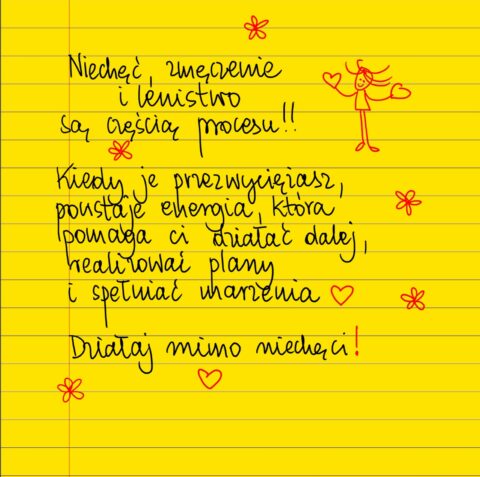 Niechęć, zmęczenie
i lenistwo
są częścią procesu!!
Kiedy je przezwyciężasz,
powstaje energia, która
pomaga ci działać dalej,
realizować plany
i spełniać marzenia
Działaj mimo niechęci!